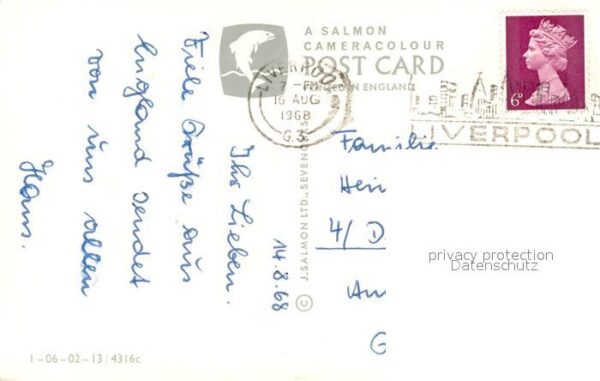 A SALMON
CAMERACOLOUR
POST CARD
PRINTED IN ENGLAND
LIVERPOOL
16 AUG
1968
6D
LIVERPOOL
© J. SALMON LTD., SEVENOAKS
14.8.68
Ihr Lieben.
Viele Grüße aus
England sendet
von uns allen
Hans.
Familie
Hein
4/ D
An
G
privacy protection
Datenschutz
1-06-02-13/4316c